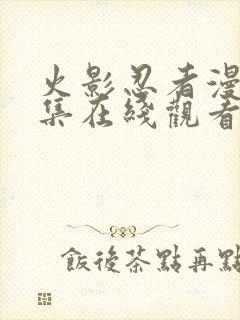 火影忍者漫
集在綫觀看
飯後茶點再點